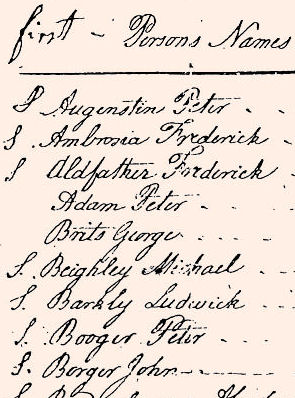 first - Persons Names
S Augenstin Peter
S. Ambrosia Frederick
S Aldfather Frederick
Adam Peter
Brits George
S. Beighley Michael
S. Barkly Ludwick
S. Booger Peter
S. Berger John